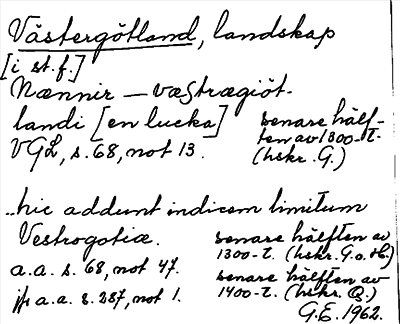 Västergötland, landskap
[i st. f.]
Nænnir – væstrægiöt-
landi [en lucka]
VGL, s. 68, not 13.
senare hälf-
ten av 1300-t.
(hskr. G.)
..hic addunt indicem limitum
Vestrogotiæ.
a.a. s. 68, not 47.
senare hälften av
1300-t. (hskr. G. o. H.)
jfr a.a. s. 287, not 1.
senare hälften av
1400-t. (hskr. Q.)
G.E. 1962.